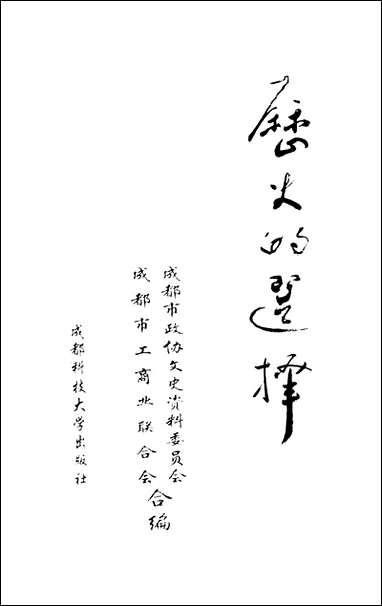 歷史的選擇
成都市政协文史资料委员会
成都市工商业联合会
合编
成都科技大学出版社